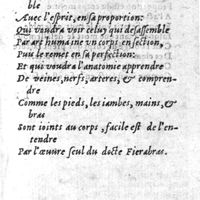 ble
Auec l'esprit, en sa proportion:
Qui voudra voir celuy qui desassemble
Par art humaine vn corps en section,
Puis le remet en sa perfection:
Et qui voudra l'anatomie apprendre
De veines, nerfs, arteres, & compren-
dre
Comme les pieds, les iambes, mains, &
bras
Sont ioints au corps, facile est de l'en-
tendre
Par l'œuure seul du docte Fierabras.